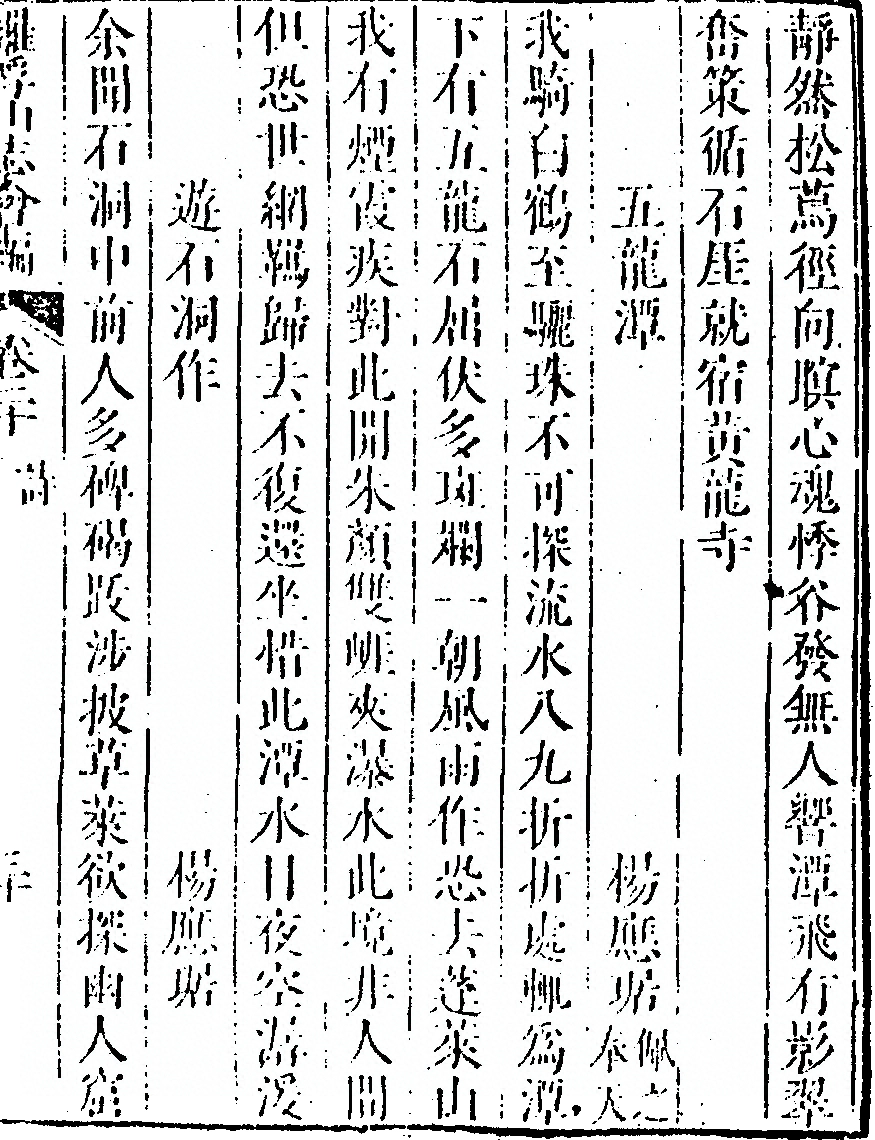 靜然松蔦徑向暝心魂悸谷發無人響潭飛有影翠
奮策循石崖就宿黃龍寺
五龍潭 楊應琚佩之奉天
我騎白鶴至驪珠不可探流水八九折折處輒為潭
下有五龍石屈伏多斑斕一朝風雨作恐去蓬萊山
我有煙霞疾對此開朱顏雙崕夾瀑水此境非人間
但恐世網羈歸去不復還坐惜此潭水日夜空潺湲
遊石洞作 楊應琚
余聞石洞中前人多碑碣跋涉披草萊欲探幽人窟
羅浮山志會編 卷二十 詩 二十